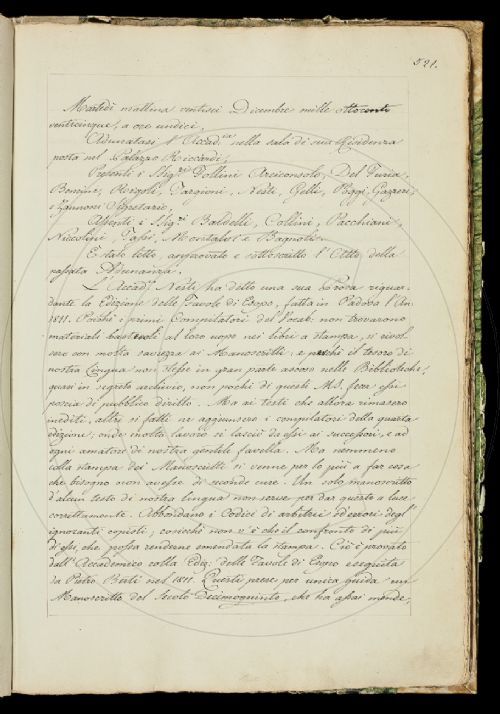 521.
Martedì mattina ventisei Dicembre mille ottocento
venticinque, a ore undici,
Adunatasi l'Accad.ia nella sala di sua Residenza
posta nel Palazzo Riccardi,
Presenti i Sig.ri Follini Arciconsolo, Del Furia,
Bencini, Rigoli, Targioni, Nesti, Gelli, Poggi, Gazzeri,
e Zannoni Segretario,
Assenti i Sig.ri Baldelli, Collini, Pacchiani,
Niccolini, Tassi, Montalvi e Bagnoli.
È stato letto, approvato e sottoscritto l'Atto della
passata Adunanza.
L'Accad.o Nesti ha detto una sua Lezione riguar-
dante la Edizione delle Favole di Esopo, fatta in Padova l'An.
1811. Poichè i primi Compilatori del Vocab. non trovarono
materiali bastevoli al loro uopo nei libri a stampa, si rivol-
sero con molta saviezza ai Manoscritti: e perchè il tesoro di
nostra Lingua non stesse in gran parte ascoso nelle Biblioteche,
quasi in segreto archivio, non pochi di questi M.S. fecer essi
poscia di pubblico diritto. Ma ai testi che allora rimasero
inediti, altri sì fatti ne aggiunsero i compilatori della quarta
edizione; onde molto lavoro si lasciò da essi ai successori, e ad
ogni amatore di nostra gentile favella. Ma nemmeno
colla stampa dei Manoscritti si venne per lo più a far cosa
che bisogno non avesse di seconde cure. Un solo manoscritto
d'alcun testo di nostra lingua non serve per dar questo a luce
correttamente. Abbondano i Codici di arbitrj ed errori degl'
ignoranti copisti; cosicchè non v'è che il confronto di più
di essi, che possa renderne emendata la stampa. Ciò è provato
dall'Accademico colla Ediz. delle Favole di Esopo eseguita
da Pietro Berti nel 1811. Questi prese per unica guida un
Manoscritto del Secolo Decimoquinto, che ha assai mende,